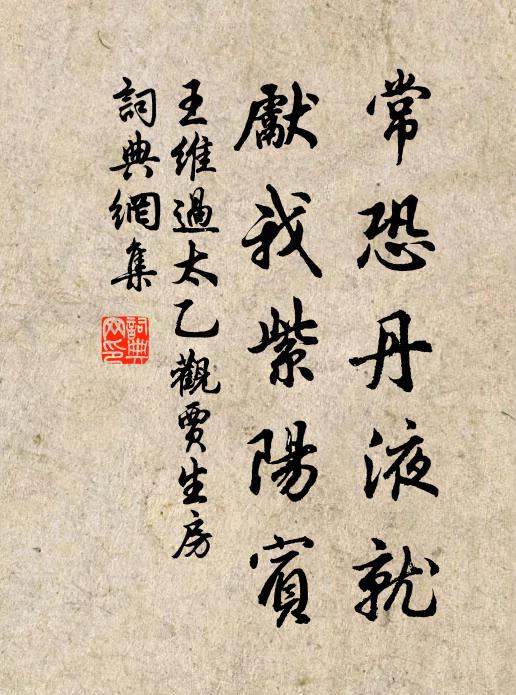 常恐丹液就
獻我紫陽賓
王維過太乙觀賈生房
詞典網集
詞典
网印